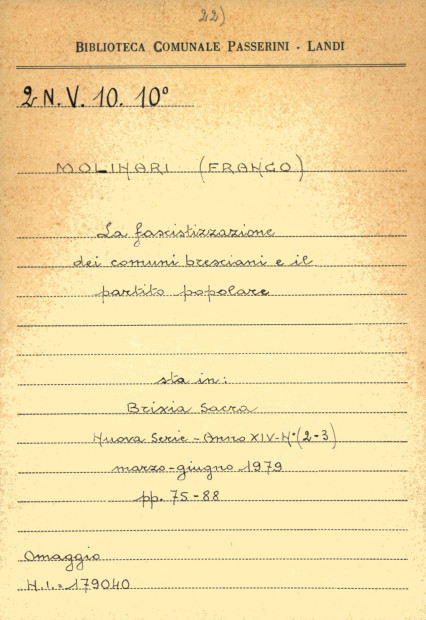 22)
BIBLIOTECA COMUNALE PASSERINI - LANDI
2 N. V. 10. 10°
MOLINARI (FRANCO)
La fascistizzazione
dei comuni bresciani e il
partito popolare
sta in:
Brixia Sacra
Nuova Serie - Anno XIV - N° (2-3)
marzo-giugno 1979
pp. 75-88
Omaggio
N.I. = 179040